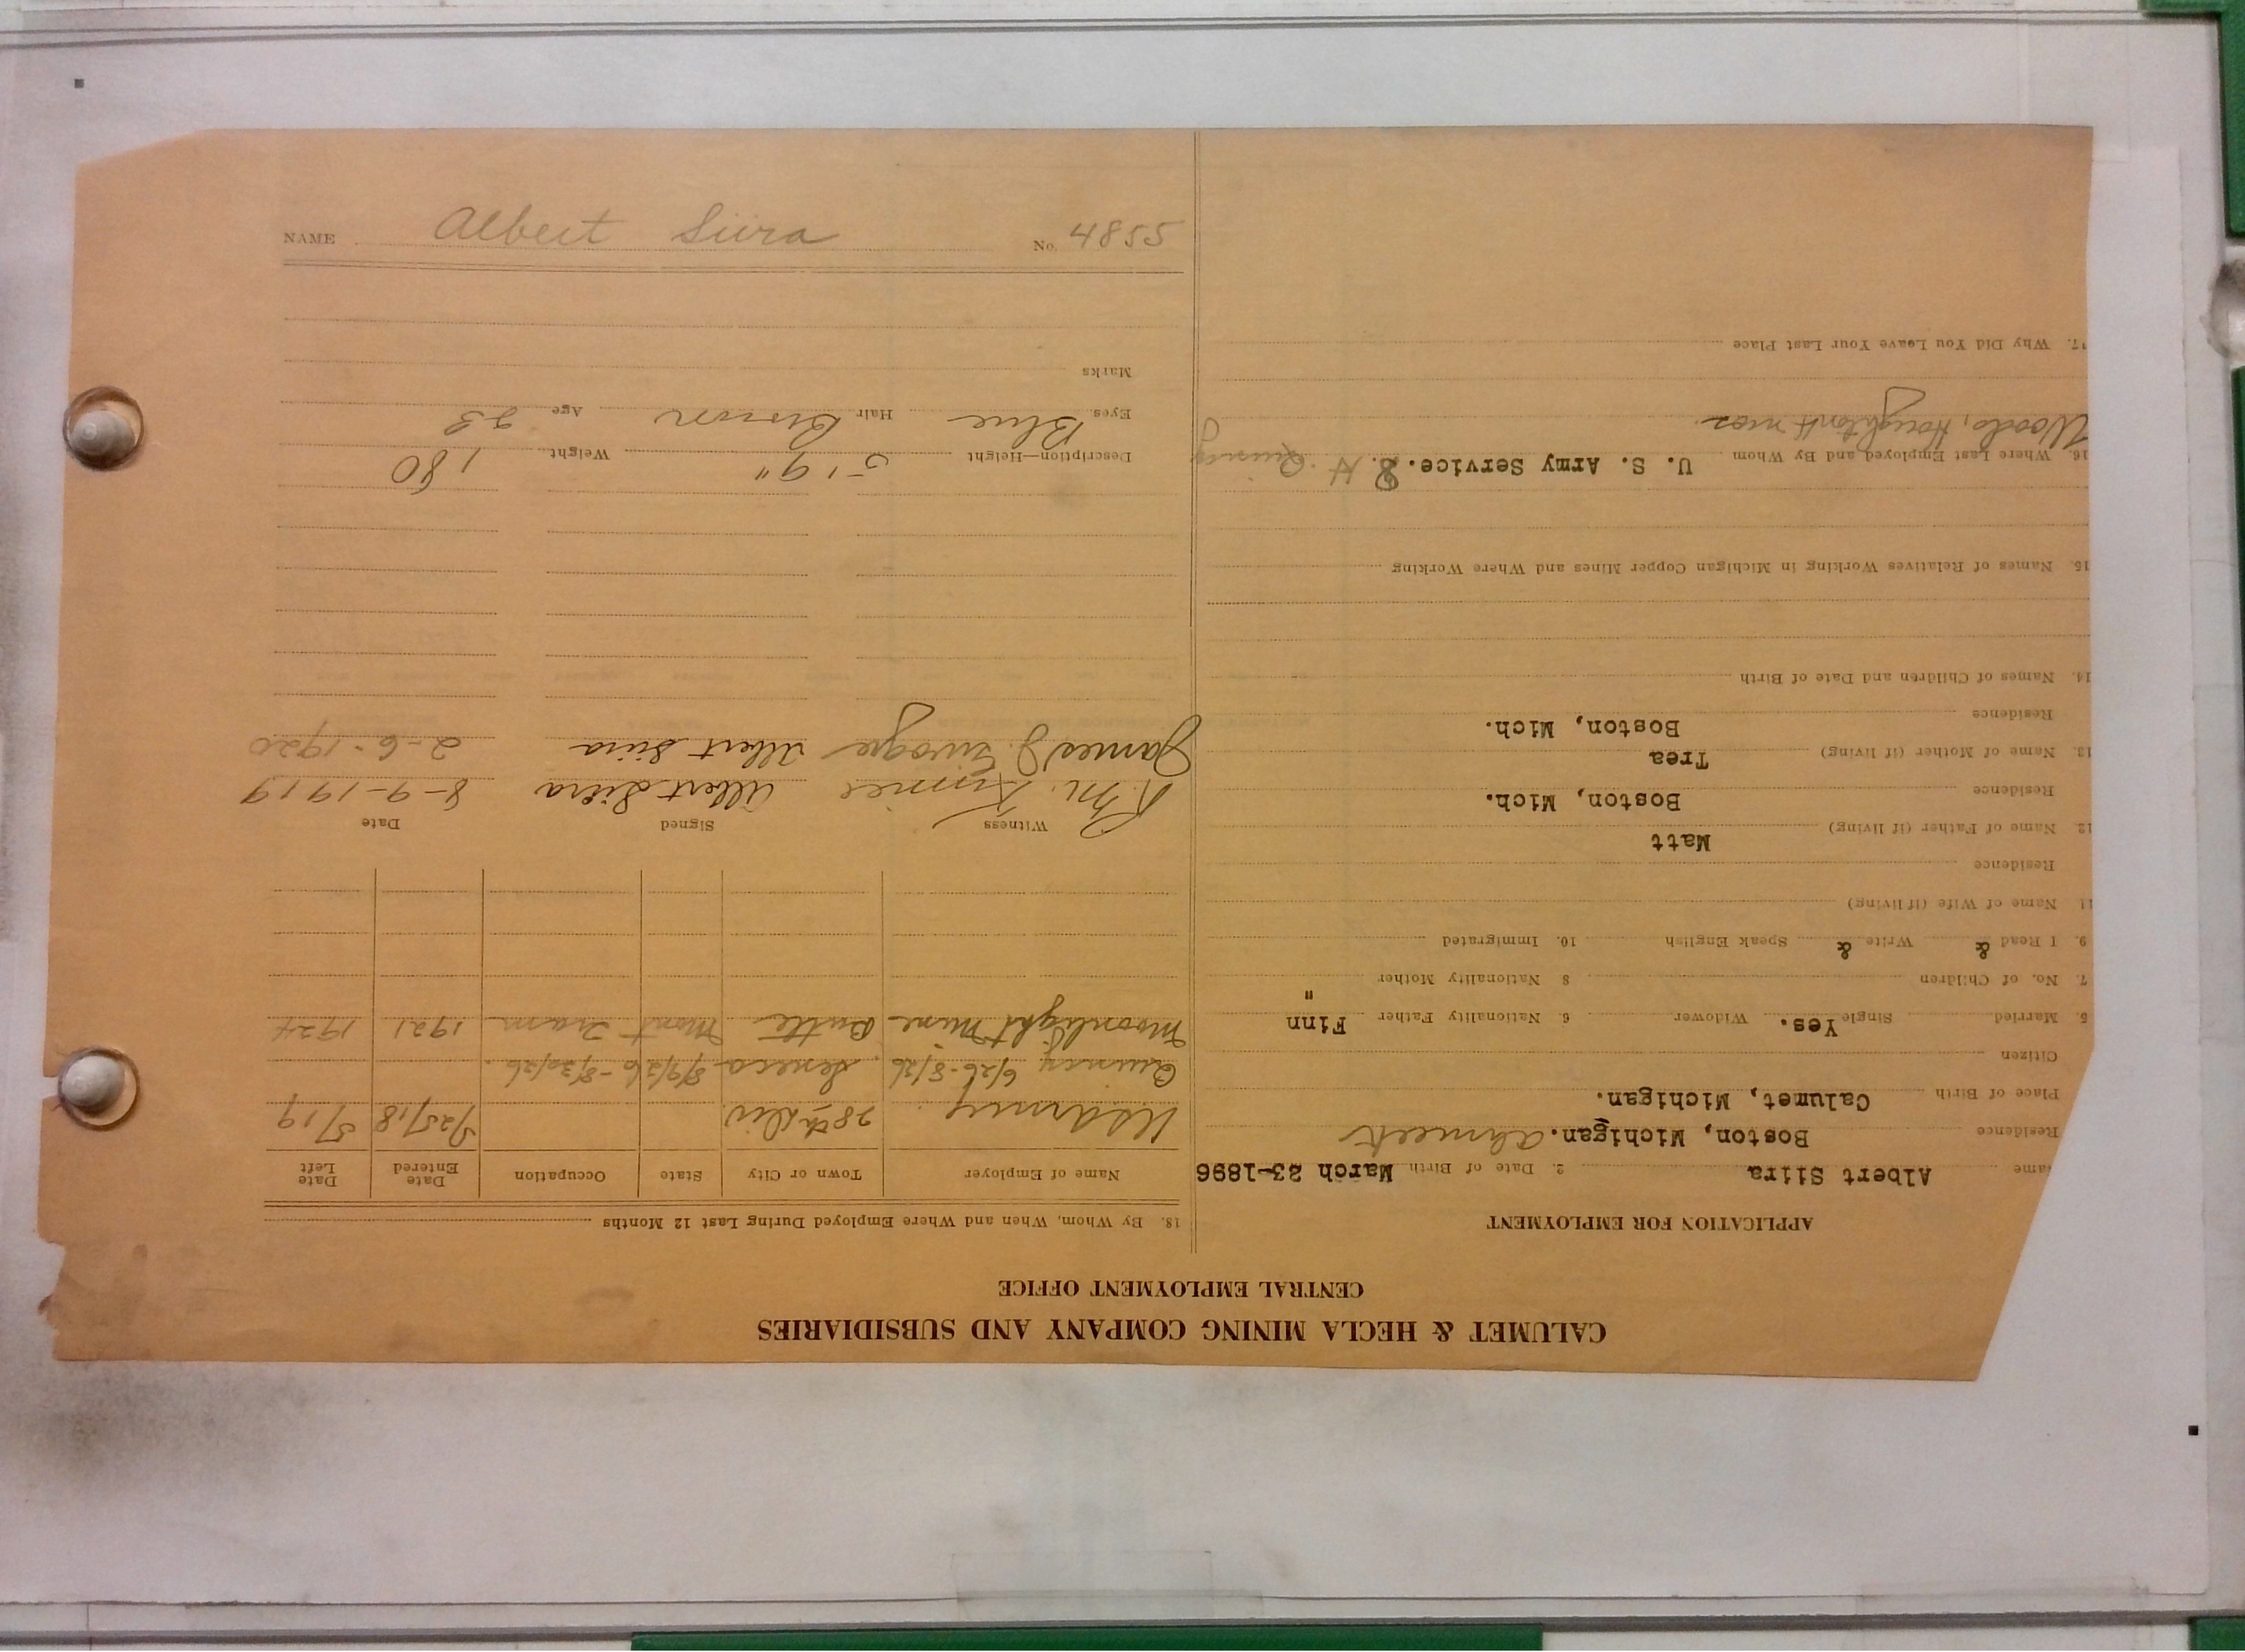 CALUMET & HECLA MINING COMPANY AND SUBSIDIARIES
CENTRAL EMPLOYMENT OFFICE
APPLICATION FOR EMPLOYMENT
ame Albert Siira 2. Date of Birth March 23-1896
Residence Boston, Michigan. Ahmeek
Place of Birth Calumet, Michigan.
Citizen
5. Married Single Yes. Widower 6. Nationality Father Finn
7. No. of Children 8 Nationality Mother "
9. I Read & Write & Speak English 10. Immigrated
11. Name of Wife (if living)
Residence
12. Name of Father (if living) Matt
Residence Boston, Mich.
13. Name of Mother (if living) Trea
Residence Boston, Mich.
14. Names of Children and Date of Birth
15. Names of Relatives Working in Michigan Copper Mines and Where Working
16. Where Last Employed and By Whom U. S. Army Service. Quincy
Woods, Houghton
17. Why Did You Leave Your Last Place
18. By Whom, When and Where Employed During Last 12 Months
Name of Employer Town or City State Occupation Date Entered Date Left
US Army 28th Div 5/25/18 5/19
Quincy 6/26-8/26 Seneca 8/9/26-8/30/26.
Moonlight Mine Butte Mont Tram 1921 1924
Witness Signed Date
R. M. Albert Siira 8-9-1919
James J. Albert Siira 2-6-1920
Description—Height 5'9" Weight 180
Eyes Blue Hair Brown Age 23
Marks
NAME Albert Siira No. 4855